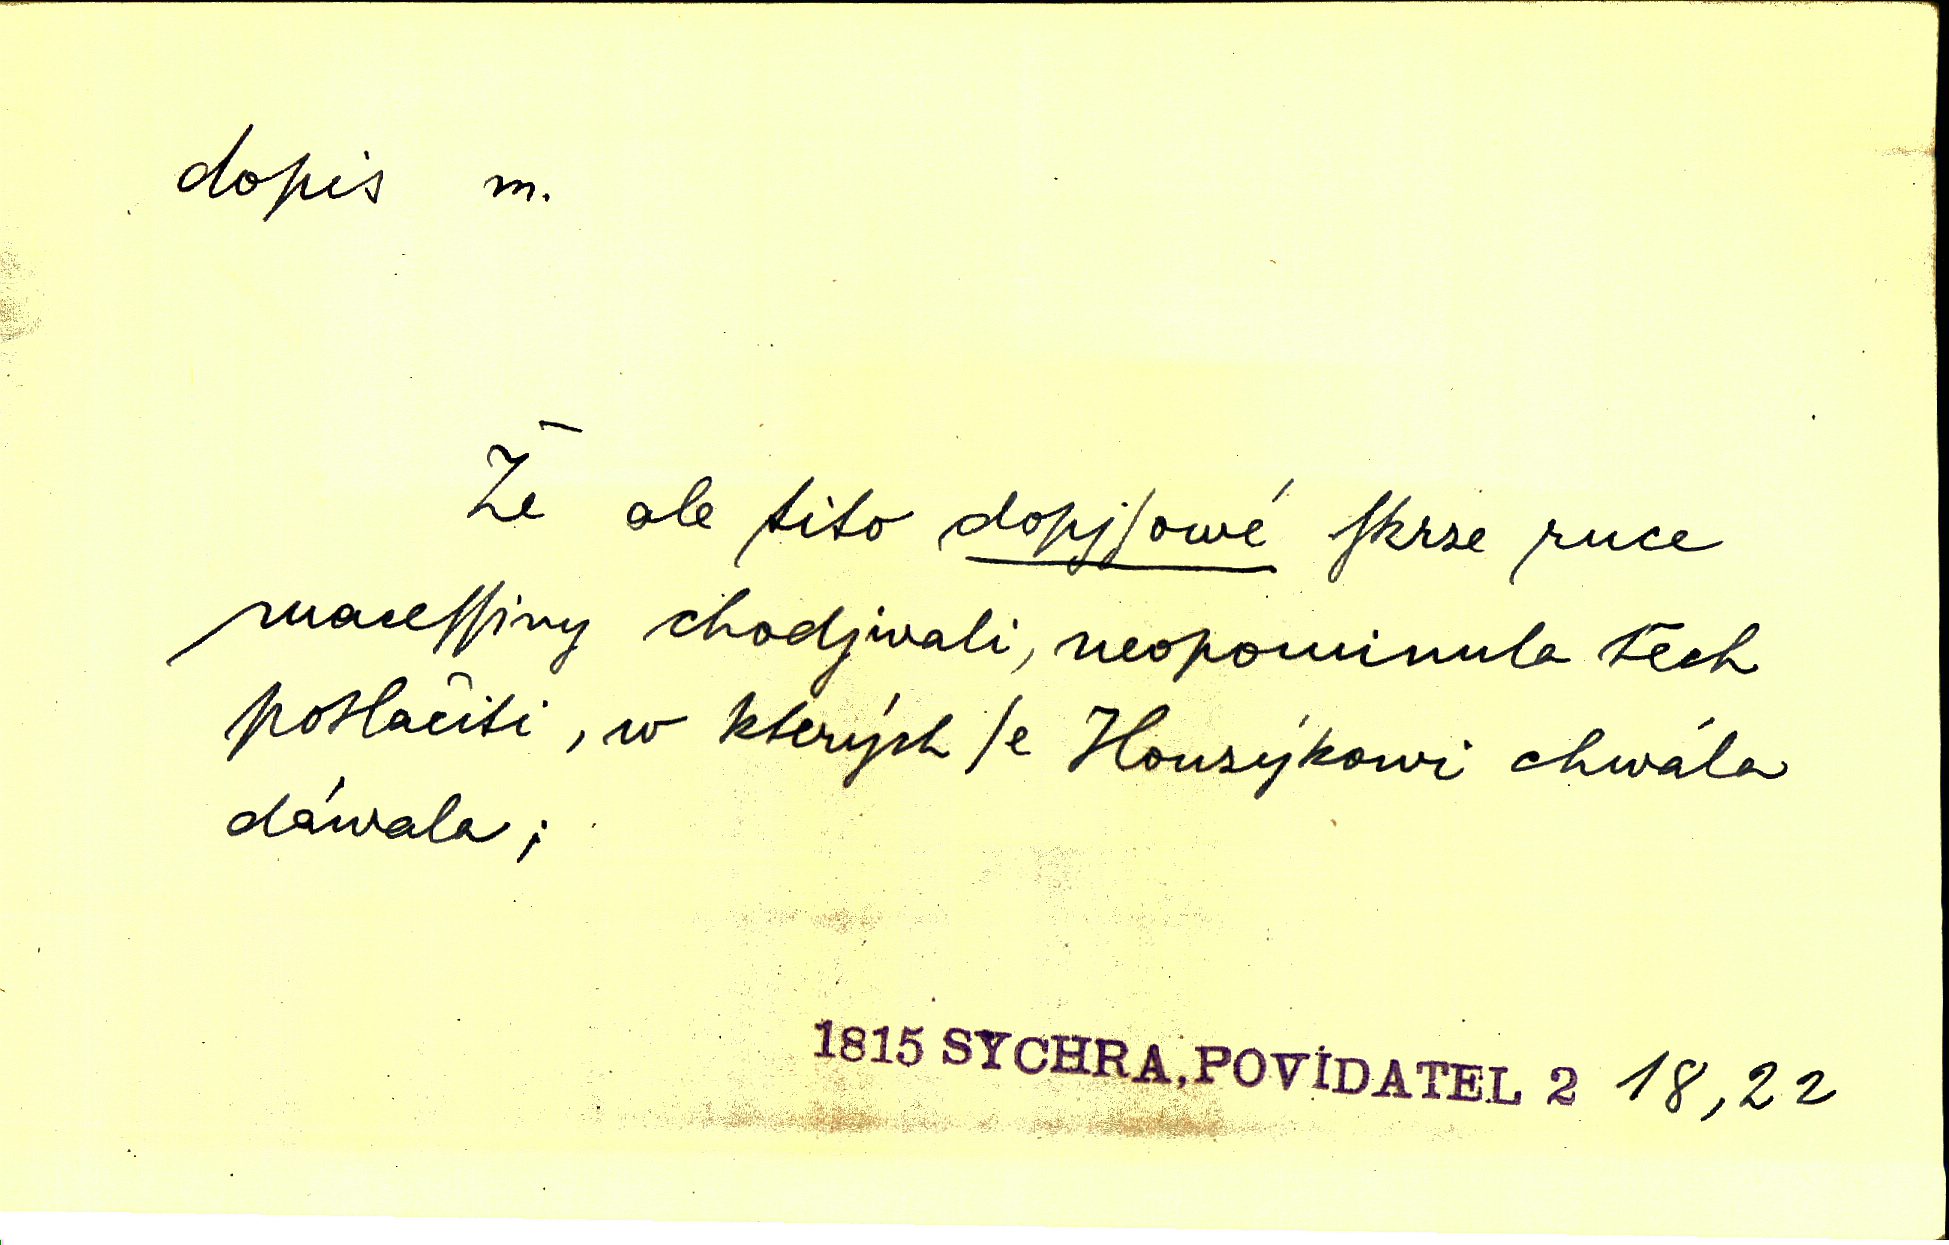 dopis m.
Že ale tito dopjſowé ſkrze ruce
maceſſiny chodjwali, neopominula těch
potlačiti, w kterých ſe Houzýkowi chwála
dáwala;
1815 SYCHRA, POVÍDATEL 2 18,22